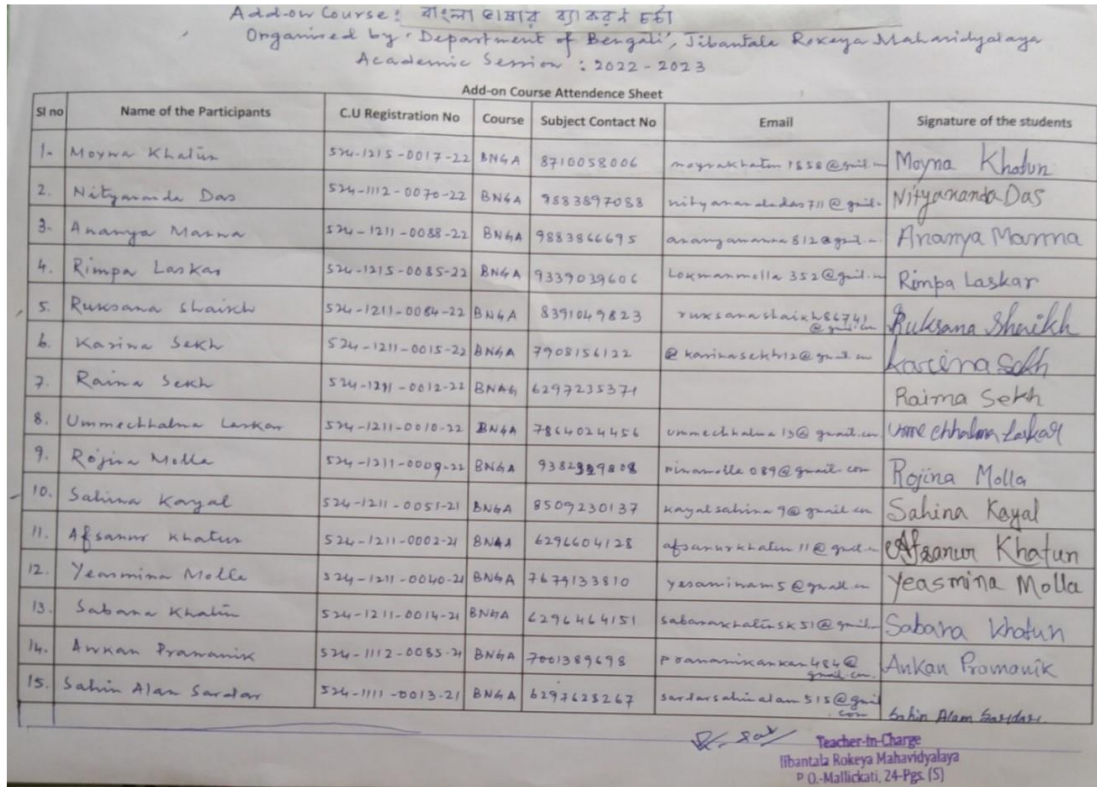 Add-on Course: বাংলা ভাষার ব্যাকরণ চর্চা
Organised by 'Department of Bengali', Jibantala Rokeya Mahavidyalaya
Academic Session : 2022-2023
Add-on Course Attendence Sheet
Sl no Name of the Participants C.U Registration No Course Subject Contact No Email Signature of the students
1. Moyna Khatun 524-1215-0017-22 BNGA 8710058006 moynakhatun1858@gmail.com Moyna Khatun
2. Nityananda Das 524-1112-0070-22 BNGA 9883897088 nityanandadas711@gmail. Nityananda Das
3. Ananya Manna 524-1211-0088-22 BNGA 9883866695 ananyamanna812@gmail. Ananya Manna
4. Rimpa Laskar 524-1215-0085-22 BNGA 9339039606 Lokmanmolla352@gmail. Rimpa Laskar
5. Ruksana Shaikh 524-1211-0084-22 BNGA 8391049823 ruksanashaikh86741@gmail.com Ruksana Shaikh
6. Karina Sekh 524-1211-0015-22 BNGA 7908156122 @karinasekh12@gmail.com Karina Sekh
7. Raina Sekh 524-1291-0012-22 BNAG 6297235371 Raima Sekh
8. Ummechhalma Laskar 524-1211-0010-22 BNGA 7864024456 ummechhalma13@gmail.com Umme chhalma Laskar
9. Rojina Molla 524-1211-0009-22 BNGA minamolla089@gmail.com Rojina Molla
10. Sahina Kayal 524-1211-0051-21 BNGA 8509230137 kayalsahina9@gmail.com Sahina Kayal
11. Afsanur Khatun 524-1211-0002-21 BNGA 6296604128 afsanurkhatun11@gmail. Afsanur Khatun
12. Yeasmina Molla 524-1211-0040-21 BNGA 7679133810 yesaminam5@gmail.com Yeasmina Molla
13. Sabana Khatun 524-1211-0014-21 BNGA 6296464151 sabanakhatunsk51@gmail. Sabana Khatun
14. Ankan Pramanik 524-1112-0085-21 BNGA 7001389698 pramanikankan484@gmail.com Ankan Pramanik
15. Sahin Alam Sardar 524-1111-0013-21 BNGA 6297628267 sardarsahinalam515@gmail.com Sahin Alam Sardar
Teacher-In-Charge
Jibantala Rokeya Mahavidyalaya
P.O.-Mallickati, 24-Pgs. (S)